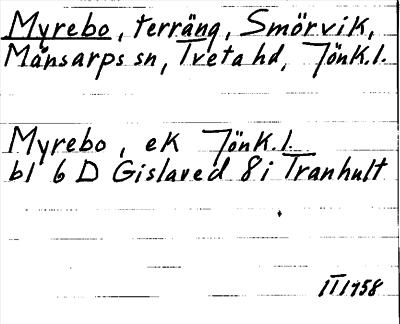 Myrebo, terräng, Smörvik,
Månsarps sn, Tveta hd, Jönk.l.
Myrebo, ek Jönk.l.
bl 6 D Gislaved 8i Tranhult
II 1958